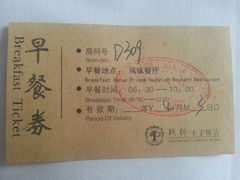 早餐券
Breakfast Ticket
房间号 D309
Room NO.
早餐地点: 风味餐厅
Breakfast Venue
早餐时间: 06:30-10:00
Breakfast Time: 06:30-10:00
有效期: 年 4月3日
Period Of Validity
王子饭店